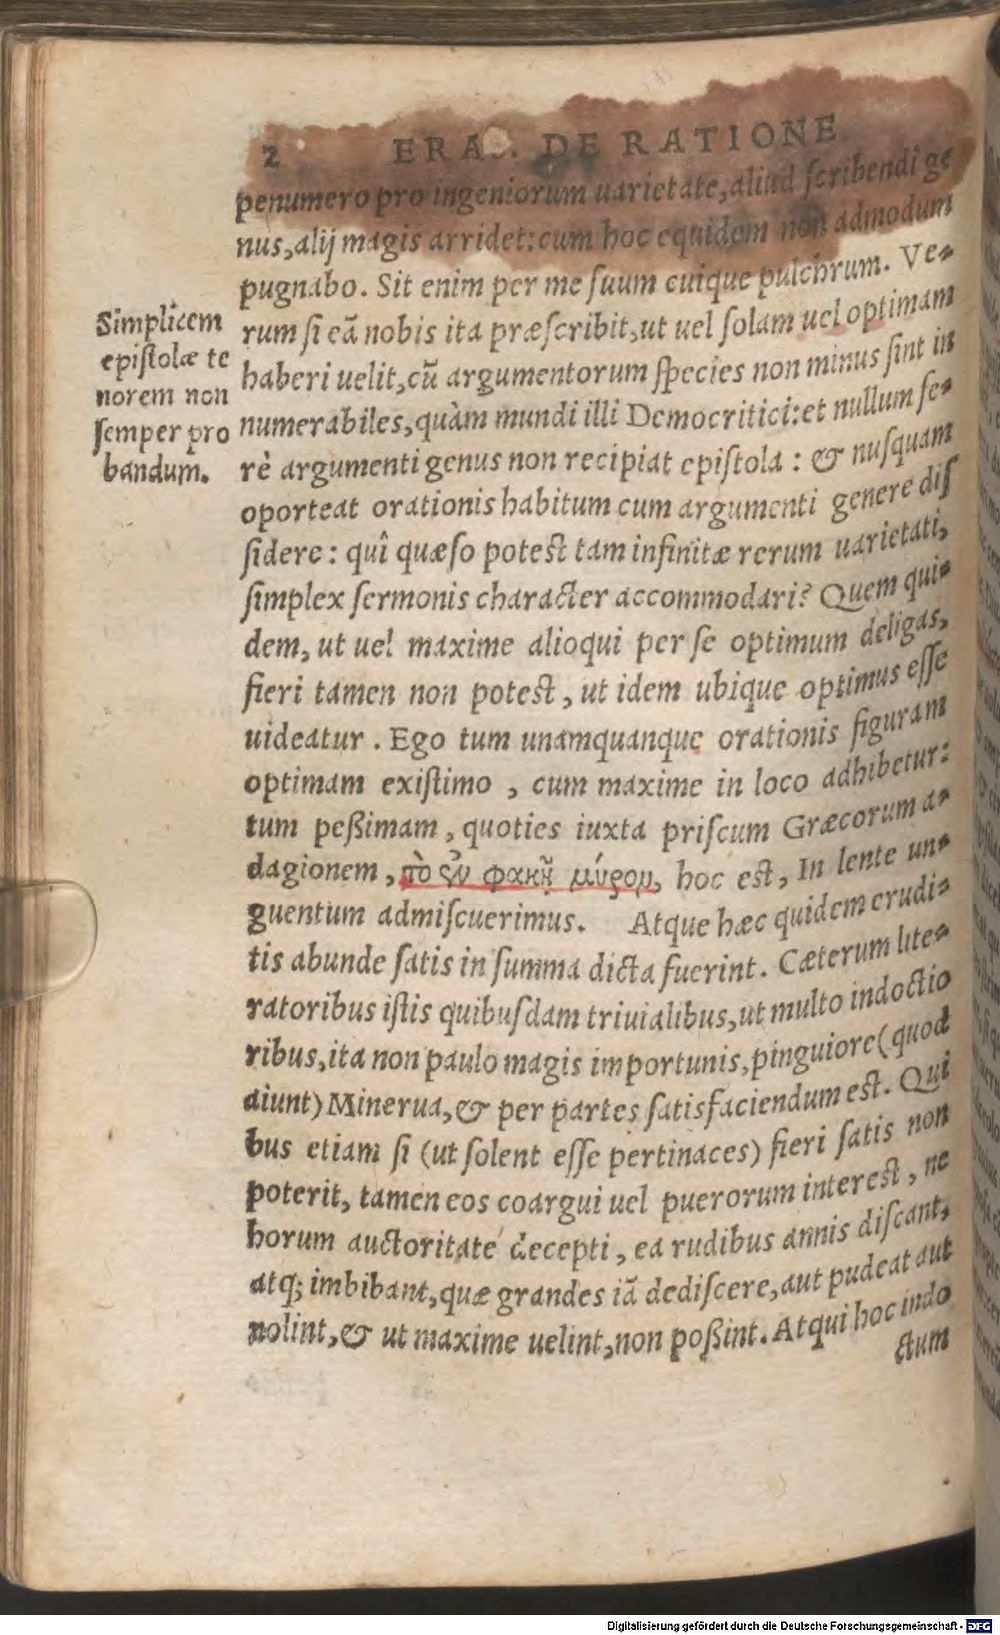 2 ERAS. DE RATIONE
penumero pro ingeniorum uarietate, aliud scribendi ge
nus, alij magis arridet: cum hoc equidem non admodum
pugnabo. Sit enim per me suum cuique pulchrum. Ve-
rum si eā nobis ita præscribit, ut uel solam uel optimam
haberi uelit, cū argumentorum species non minus sint in
numerabiles, quàm mundi illi Democritici: et nullum fe-
rè argumenti genus non recipiat epistola : & nusquam
oporteat orationis habitum cum argumenti genere dis
sidere : quî quæso potest tam infinitæ rerum uarietati,
simplex sermonis character accommodari? Quem qui-
dem, ut uel maxime alioqui per se optimum deligas,
fieri tamen non potest, ut idem ubique optimus esse
uideatur. Ego tum unamquanque orationis figuram
optimam existimo, cum maxime in loco adhibetur:
tum peßimam, quoties iuxta priscum Græcorum a-
dagionem, τὸ ἐν φακῇ μύρον, hoc est, In lente un-
guentum admiscuerimus. Atque hæc quidem erudi-
tis abunde satis in summa dicta fuerint. Cæterum lite-
ratoribus istis quibusdam triuialibus, ut multo indoctio
ribus, ita non paulo magis importunis, pinguiore (quod
aiunt) Minerua, & per partes satisfaciendum est. Qui
bus etiam si (ut solent esse pertinaces) fieri satis non
poterit, tamen eos coargui uel puerorum interest, ne
horum auctoritate decepti, ea rudibus annis discant,
atq; imbibant, quæ grandes iā dediscere, aut pudeat aut
nolint, & ut maxime uelint, non poßint. Atqui hoc indo
ctum
Simplicem
epistolæ te
norem non
semper pro
bandum.
Digitalisierung gefördert durch die Deutsche Forschungsgemeinschaft - DFG